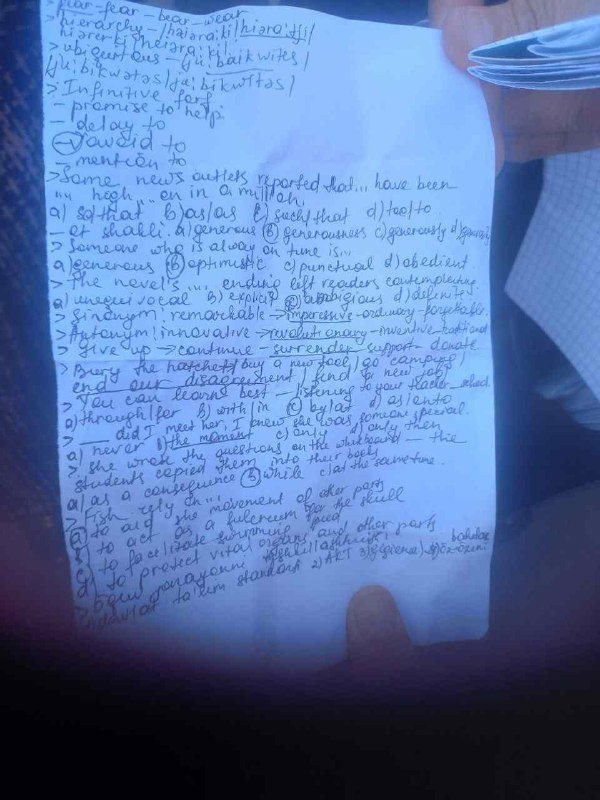 > fear-fear-bear-wear
> hierarchy - /haiəra:ki/hiəra:tʃi/
hiərerki/heiəra:ki/
> ubiquitous - /ju:baikwites/
/ju:bikwətəs/ju:bikwitəs/
> Infinitive
- promise to help
- delay to
- avoid to
- mention to
> Some news outlets reported that... have been
... high ... on in a million.
a) so/that b) as/as c) such/that d) too/to
a) generous b) generousness c) generously d)
> Someone who is always on time is...
a) generous b) optimistic c) punctual d) obedient
> The novel's .... ending left readers contemplating.
a) unequivocal b) explicit c) d) definite
> Sinonym: remarkable → impressive - ordinary - forgettable.
> Antonym: innovative → revolutionary - inventive -
> give up → continue - surrender - support - donate
> Bury the hatchet/buy a new tool/go camping/
end our disagreement/find a new job/
> You can learns best - listening to your teacher school
a) through/for b) with/in c) by/at d) as/onto
> __ did I meet her, I knew she was someone special.
a) never b) the moment c) only d) only then
> She wrote the questions on the whiteboard — the
students copied them into their books
a) as a consequence b) while c) at the same time.
> Fish rely on ...
a) to aid the movement of other parts
b) to act as a fulcrum for the skull
c) to facilitate swimming speed
d) to protect vital organs and other parts
> baholash
1) davlat ta'lim standarti 2) AKT 3) gigiena